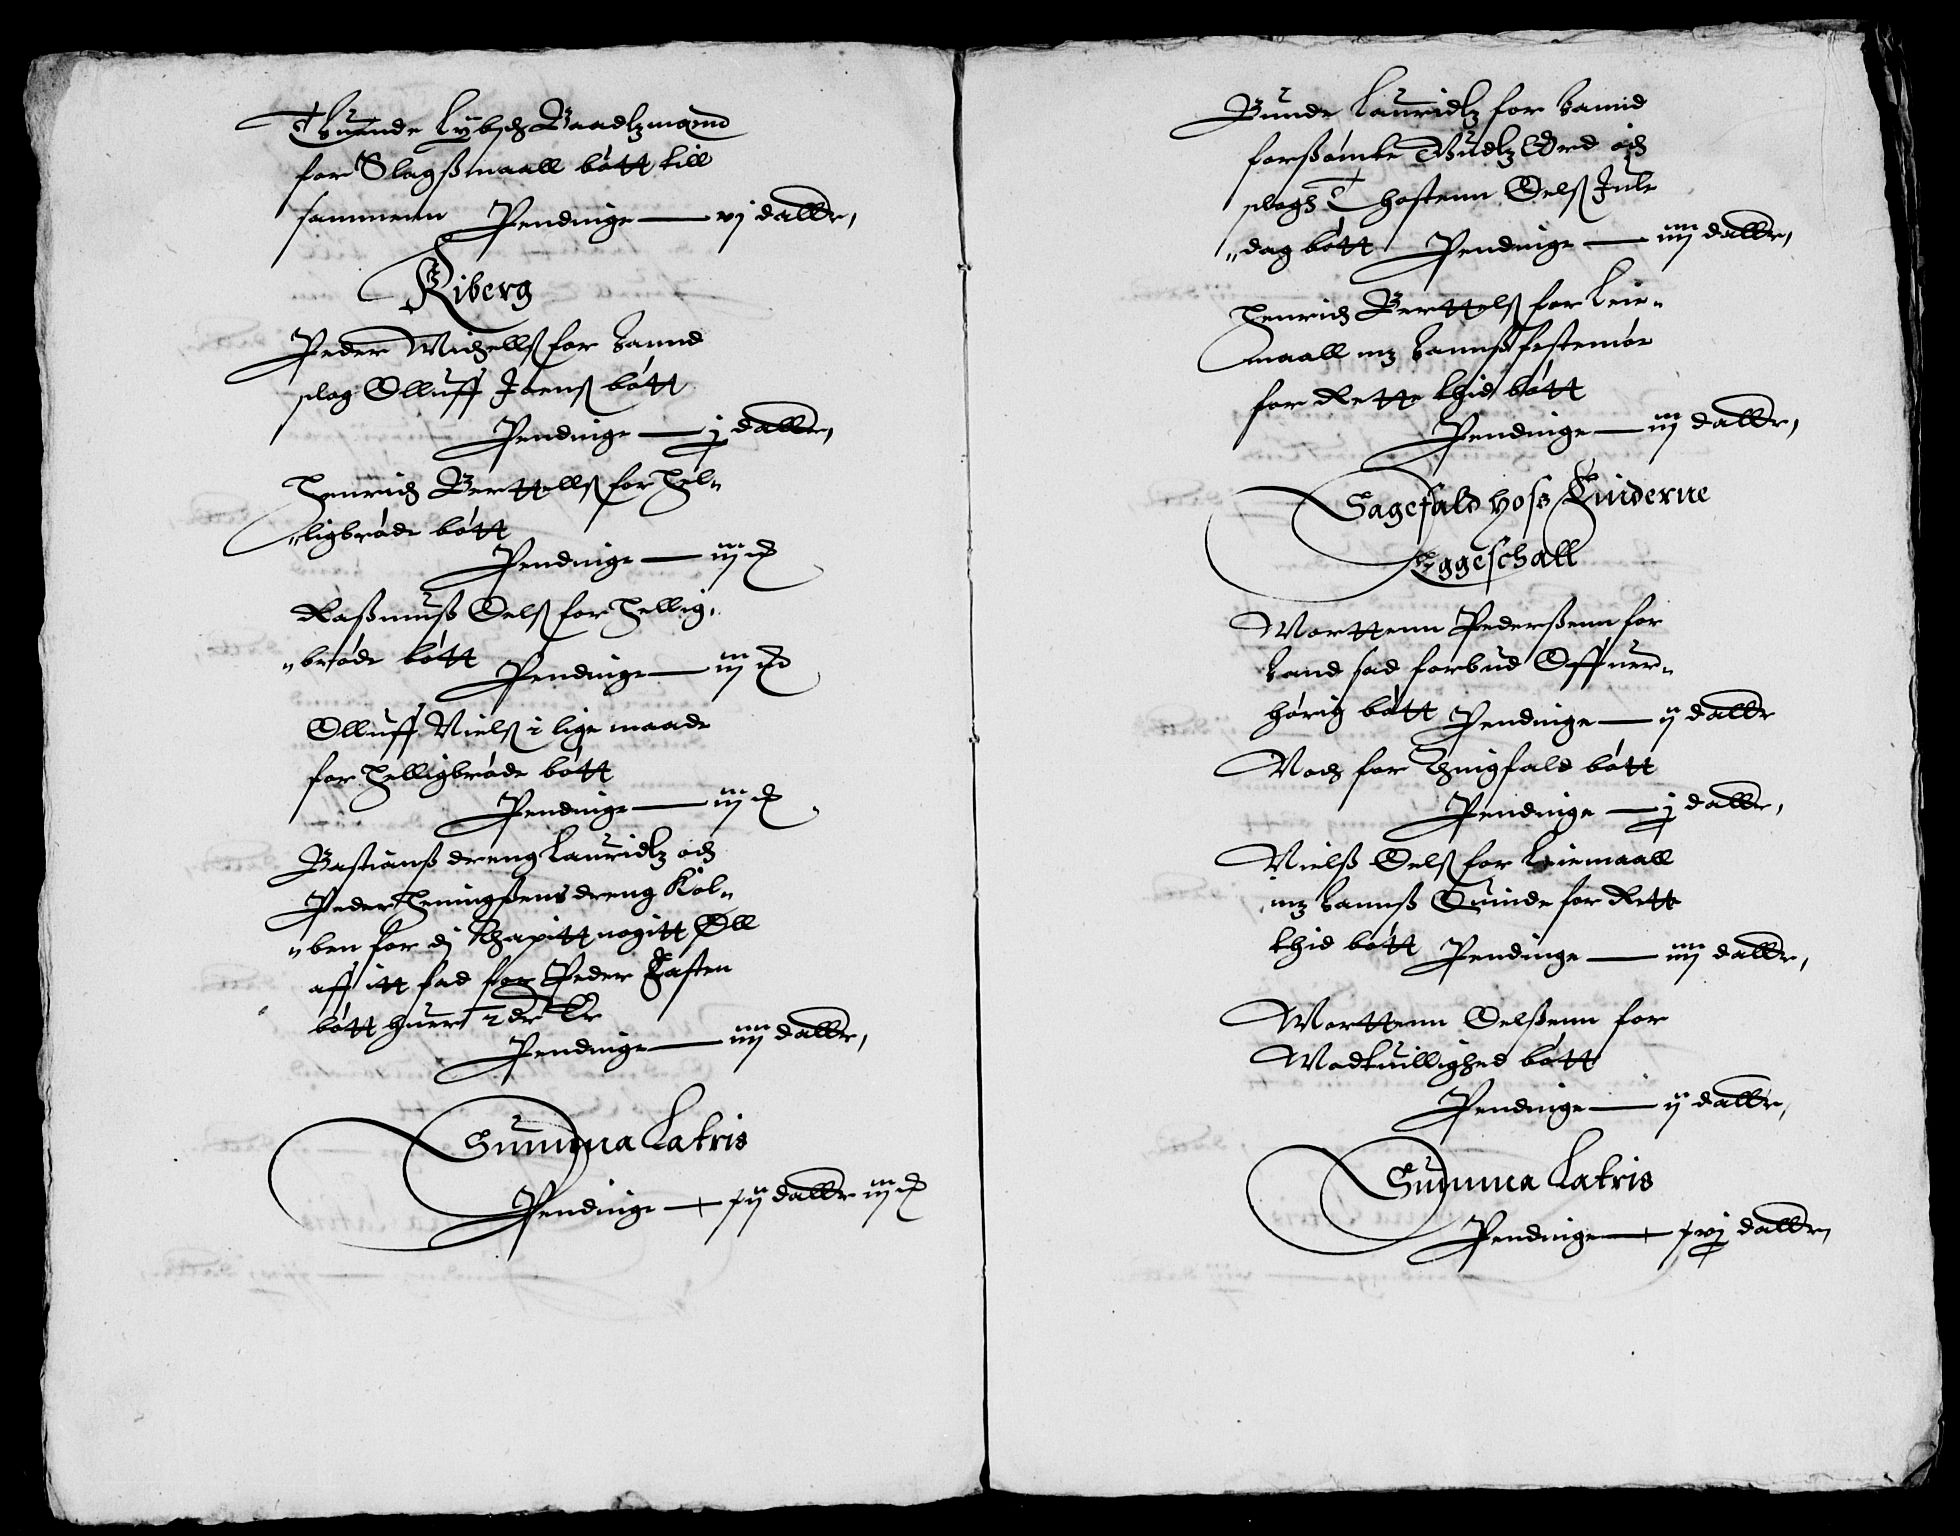 Thuende Lybsch Baadtzmend
for Slagßmaall bøtt till
sammenn Pendinge — vj daller,
Kiberg
Peder Michellß for hannd
slog Olluff Joenß bøtt
Pendinge — j daller,
Henrich Berttellß for Hel„
„ligbrøde bøtt
Pendinge — iij
Raßmuß Oelß for Hellig„
„brøde bøtt Pendinge — iij
Olluff Nielß i lige maade
for Helligbrøde bøtt
Pendinge — iij
Bastianß dreng Lauridtz och
Peder Heningßens dreng Kol„
„ben for di thapitt nogitt Øll
aff itt fad for Peder Casten
bøtt huer 2 dr Er
Pendinge — iiij daller,
Summa Latris
Pendinge — xij daller iij
Bunde Lauridtz for hannd
forßømte Gudtz Ord och
slogh Thostenn Oelß Jule
„dag bøtt Pendinge — iiij daller,
Henrich Berttelß for Leier„
maall mz hannß festemøe
for Rette thid bøtt
Pendinge — iij daller,
Sagefald hoss Quiderne
Eggeschall
Morttenn Pederßenn for
hand sad forbud Offuer„
hørig bøtt Pendinge — ij daller
Noch for Thingfald bøtt
Pendinge — j daller,
Nielß Oelß for Leiermaall
mz hannß Quinde for Rett
thid bøtt Pendinge — iiij daller,
Morttenn Oelßenn for
Modtuillighed bøtt
Pendinge — ij daller,
Summa Latris
Pendinge — xvj daller,